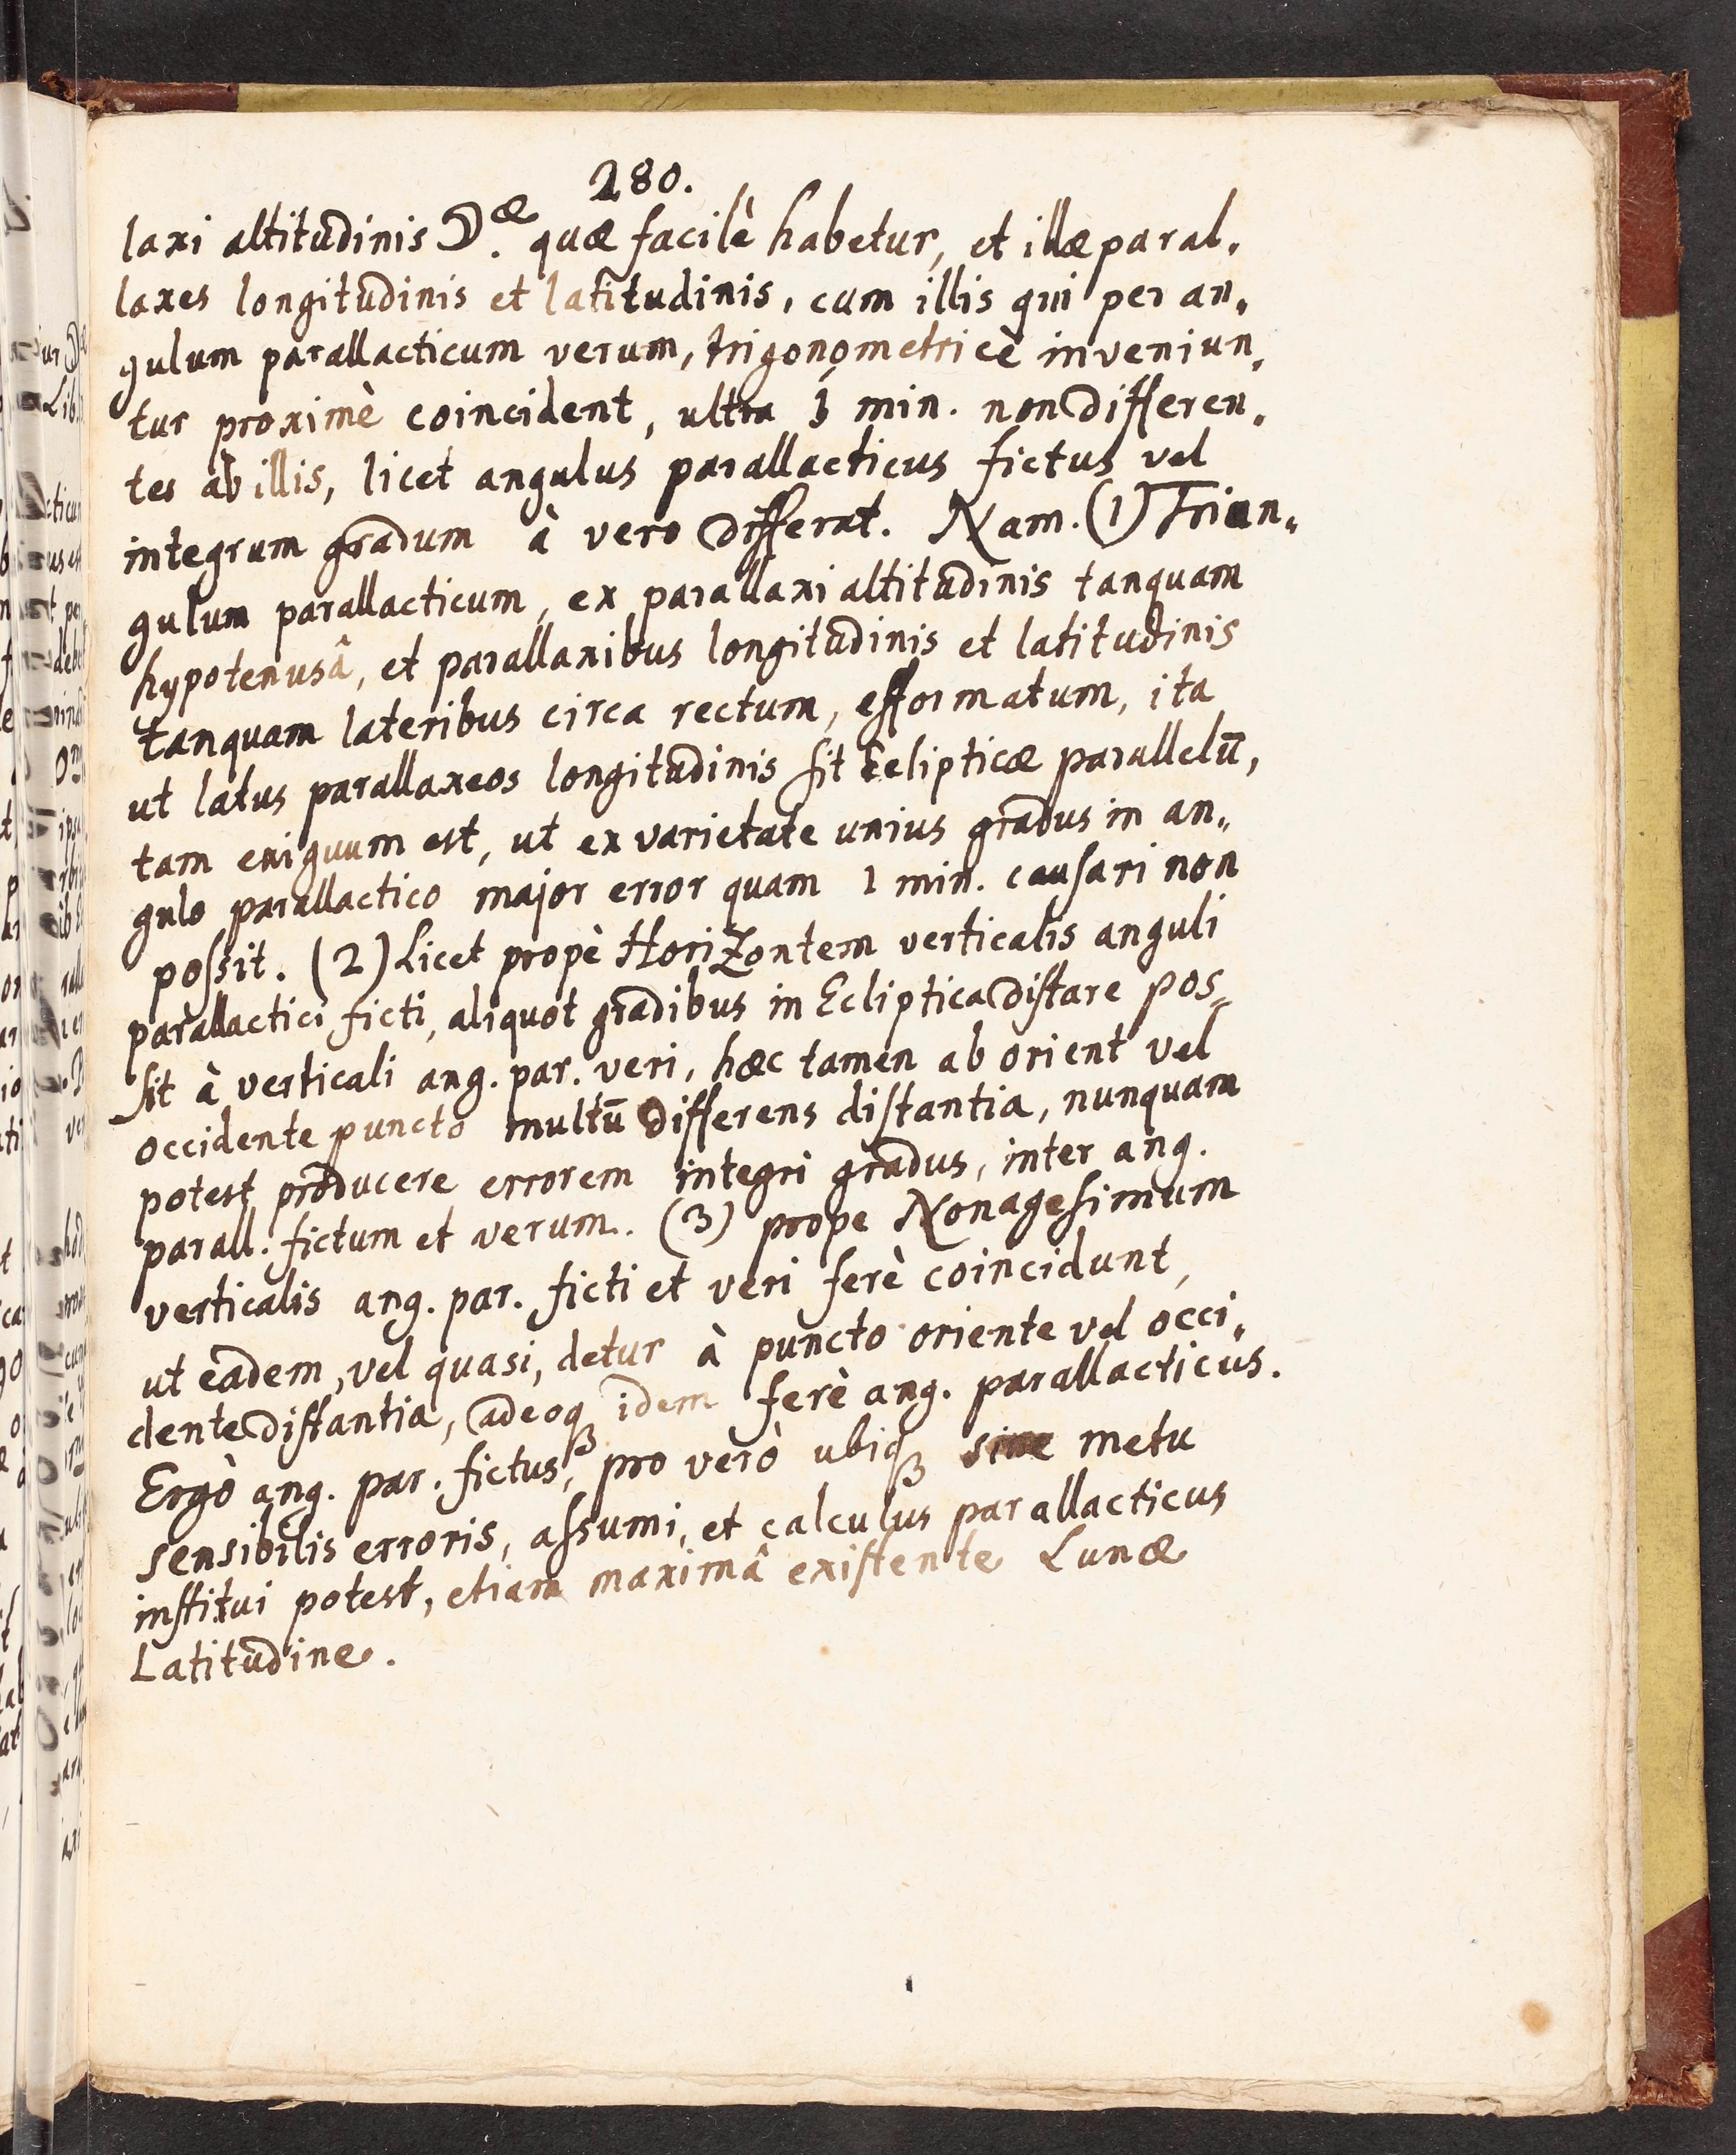 280.
laxi altitudinis ☽.æ quæ facilè habetur, et illæ paral,
laxes longitudinis et latitudinis, cum illis qui per an,
gulum parallacticum verum, trigonometricè inveniun,
tur proximè coincident, ultra 1 min. non differen,
tes ab illis, licet angulus parallacticus fictus vel
integrum gradum à vero differat. Nam. (1) Trian„
gulum parallacticum, ex parallaxi altitudinis tanquam
hypotenusâ, et parallaxibus longitudinis et latitudinis
tanquam lateribus circa rectum, efformatum, ita
ut latus parallaxeos longitudinis sit Eclipticæ parallelū,
tam exiguum est, ut ex varietate unius gradus in an„
gulo parallactico major error quam 1 min. causari non
possit. (2) Licet propè Horizontem verticalis anguli
parallactici ficti, aliquot gradibus in Ecliptica distare pos„
sit à verticali ang. par. veri, hæc tamen ab orient vel
occidente puncto multū differens distantia, nunquam
potest producere errorem integri gradus, inter ang.
parall. fictum et verum. (3) prope Nonagesimum
verticalis ang. par. ficti et veri ferè coincidunt,
ut eadem, vel quasi, detur à puncto oriente vel occi,
dente distantia, adeoqꝫ idem ferè ang. parallacticus.
Ergò ang. par. fictus, pro verò ubiqꝫ sine metu
sensibilis erroris, assumi, et calculus parallacticus
institui potest, etiam maximâ existente Lunæ
Latitudine.